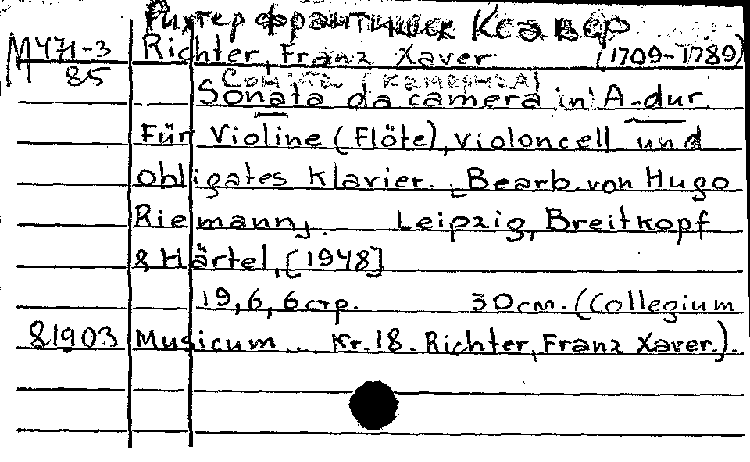 Рихтер Франтишек Ксавер
М471-3 Richter, Franz Xaver (1709-1789)
85
Sonata da camera in A-dur
Für Violine (Flöte), violoncell und
obligates Klavier. Bearb. von Hugo
Riemann. Leipzig, Breitkopf
& Härtel, [1948]
19, 6, 6 стр. 30 cm. (Collegium
81903 Musicum. Nr. 18. Richter, Franz Xaver.).